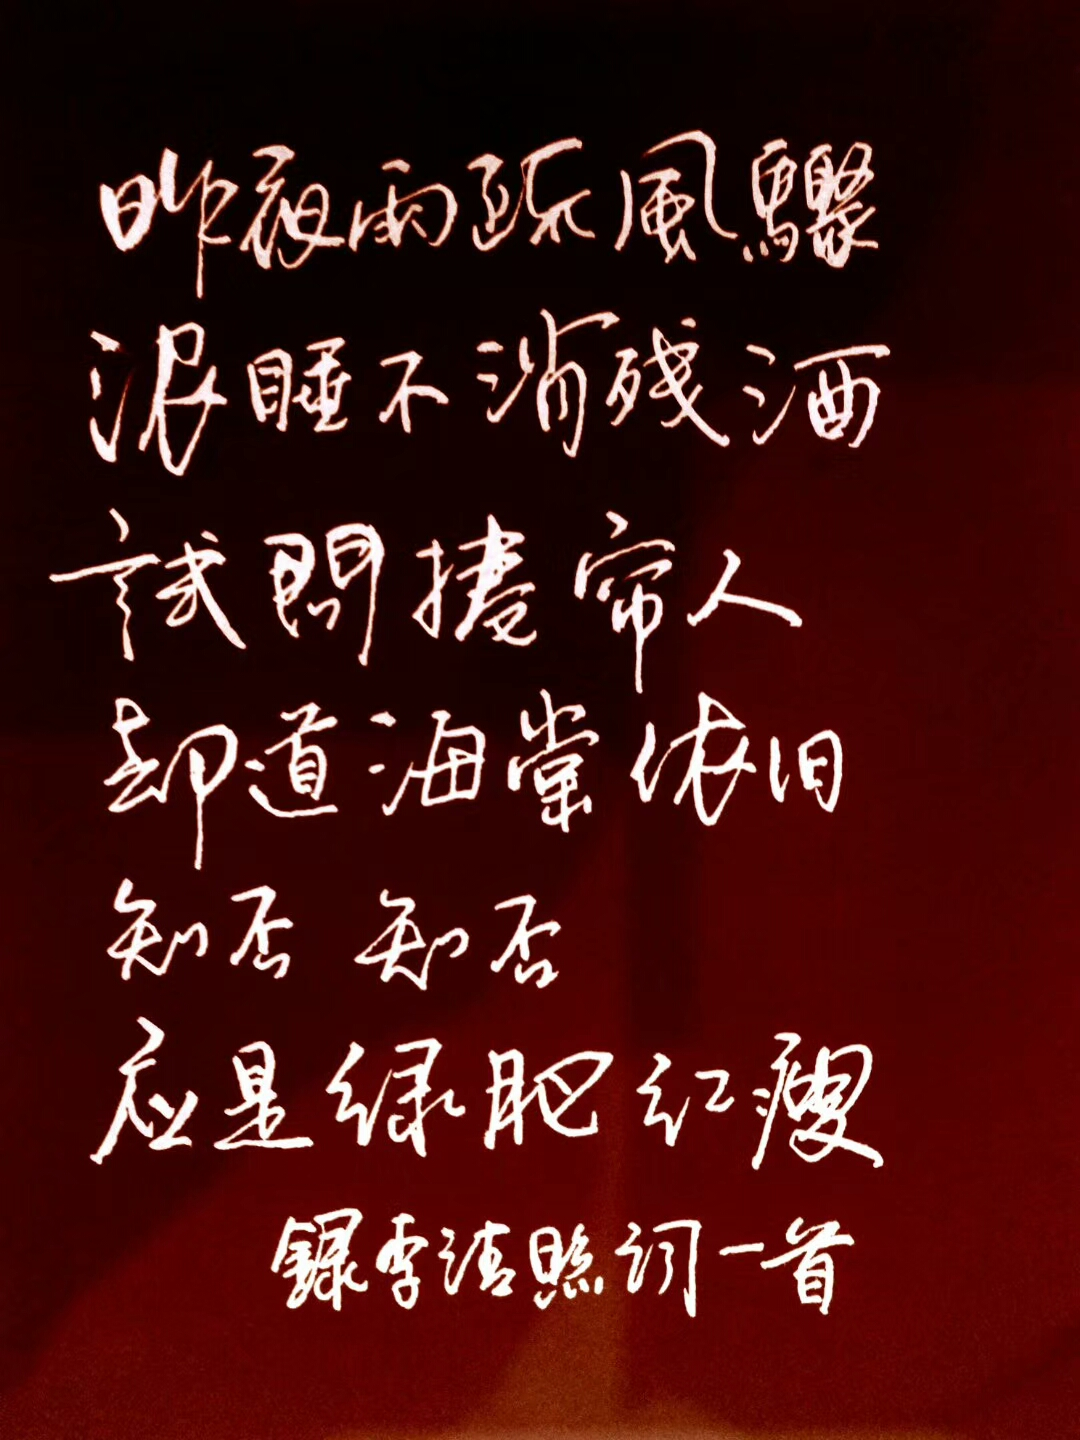 昨夜雨疏風驟
浓睡不消残酒
試問捲帘人
却道海棠依旧
知否 知否
应是绿肥红瘦
録李清照词一首